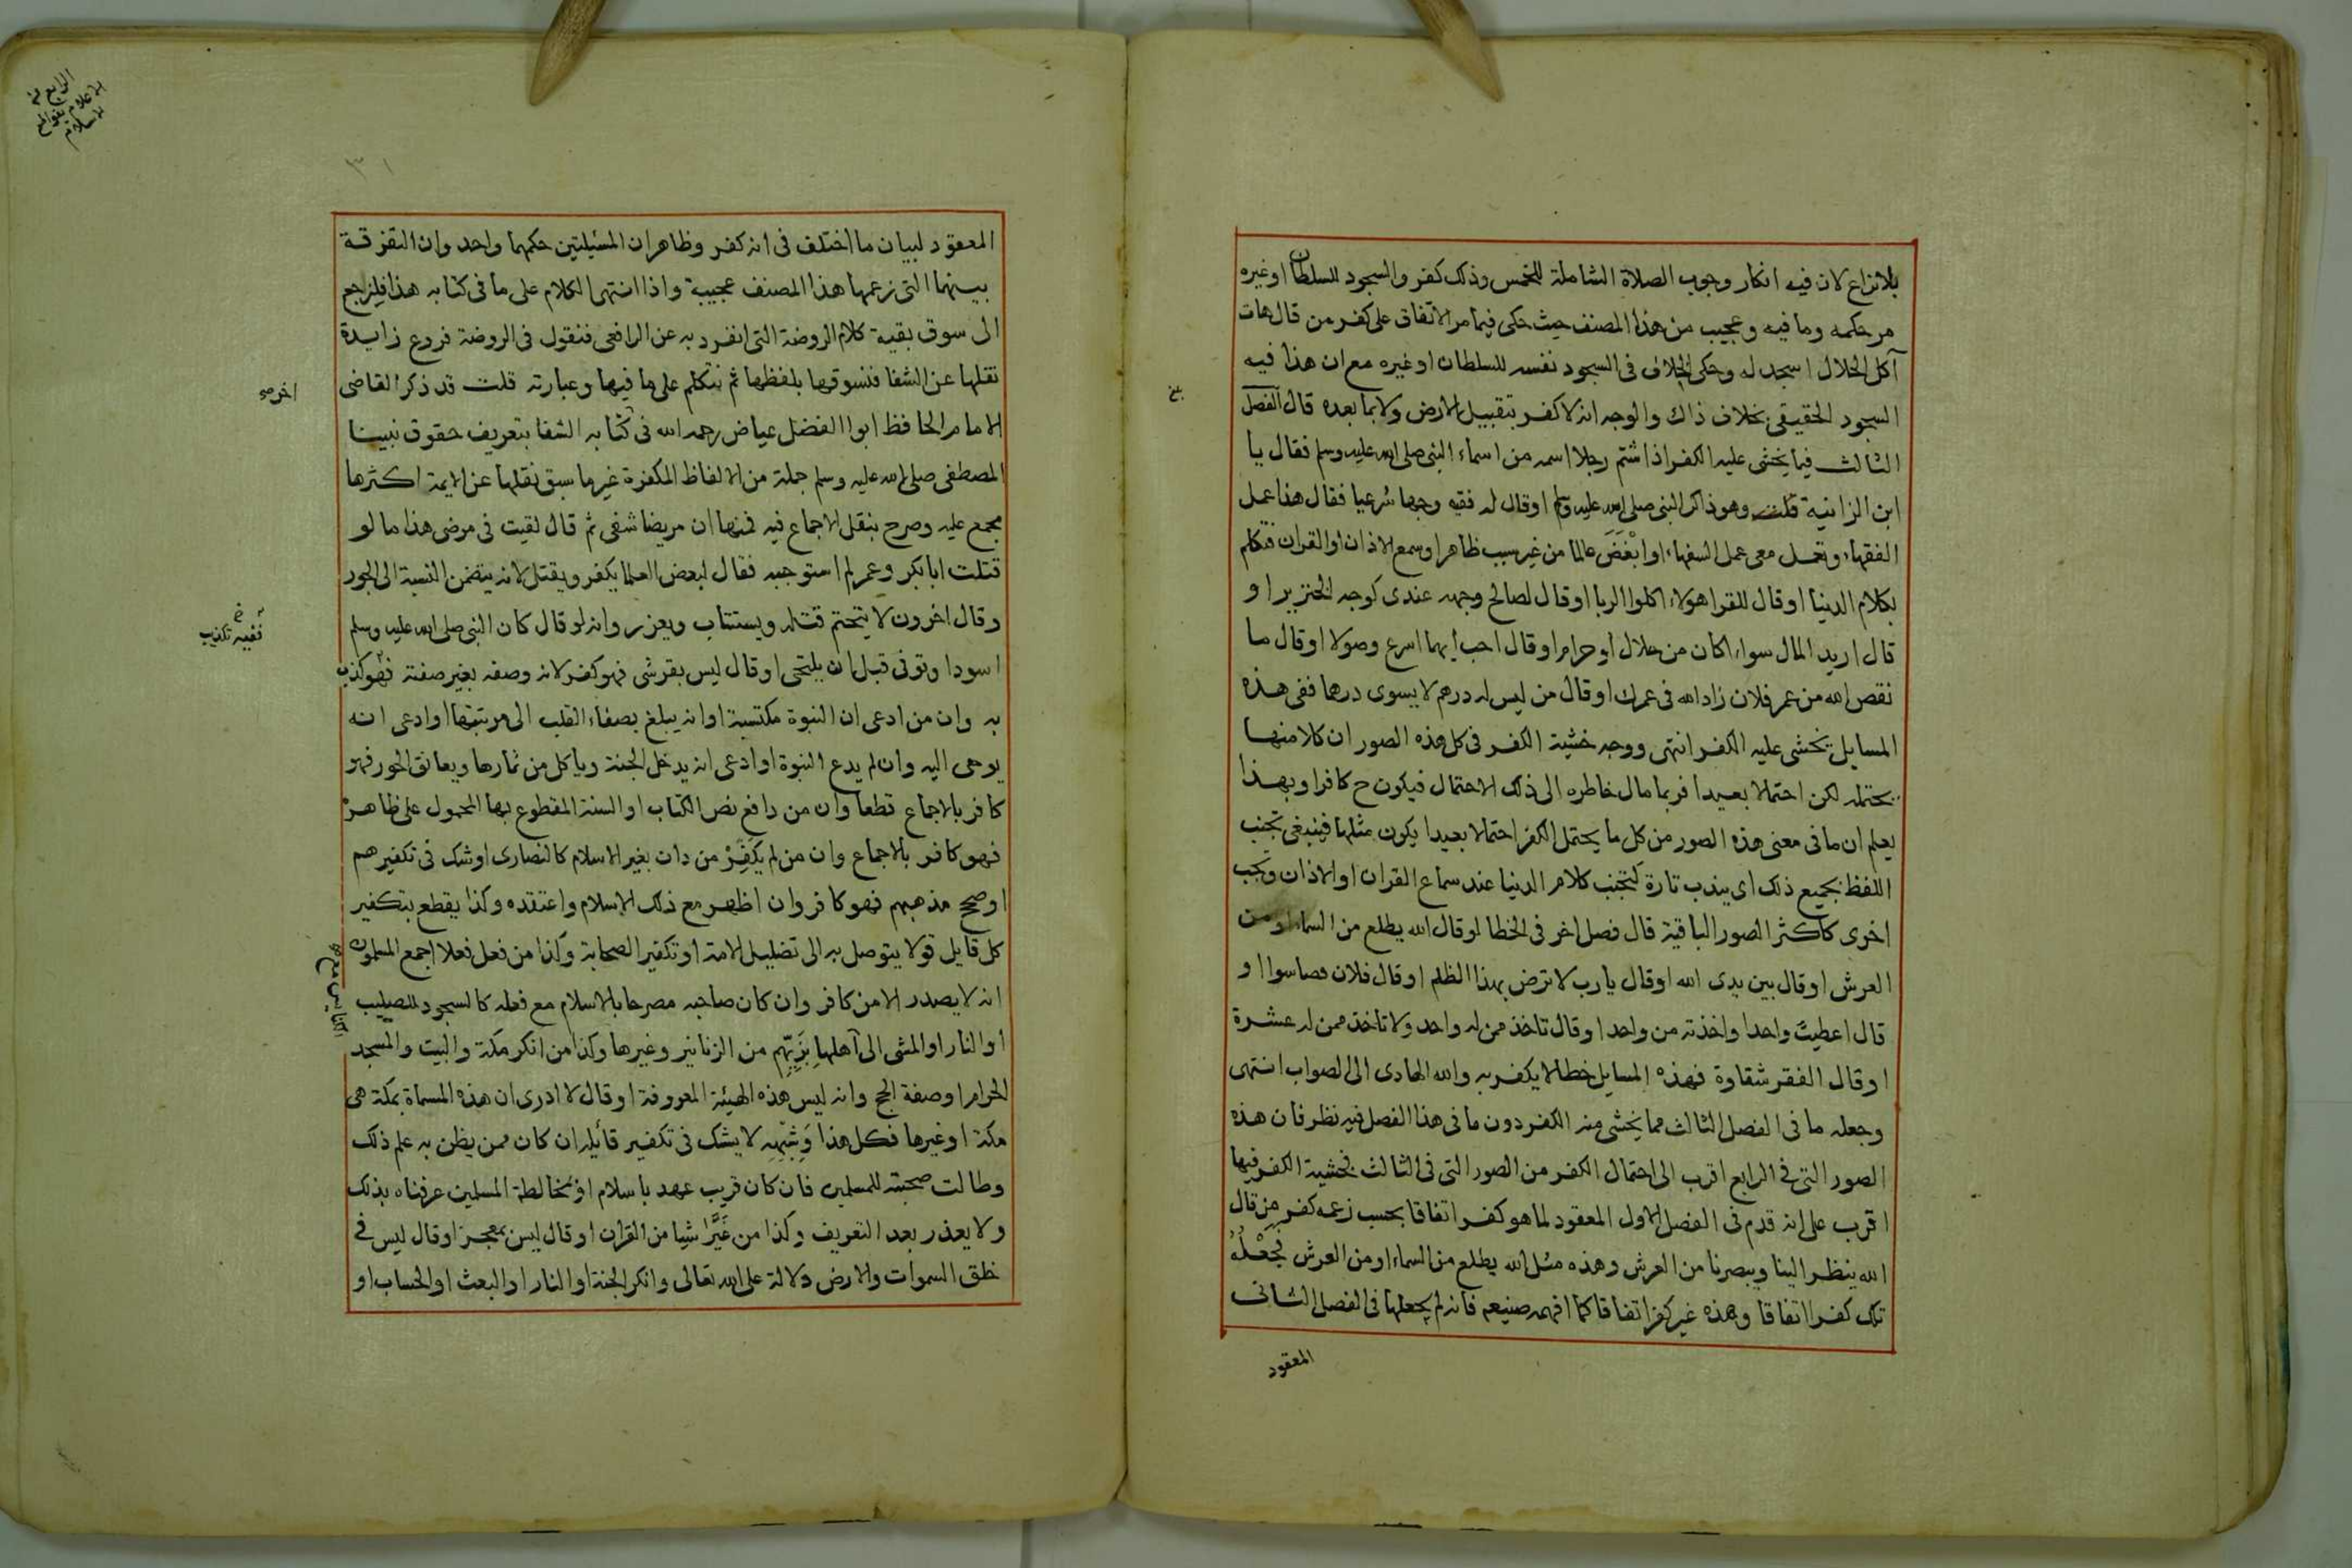 بلا نزاع لان فيه انكار وجوب الصلاة الشاملة للخمس وذلك كفر والسجود للسلطان او غيره
مر حكمه وما فيه وعجيب من هذا المصنف حيث حكى فيما مر الاتفاق على كفر من قال هات
آكل الحلال اسجد له وحكى الخلاف فى السجود نفسه للسلطان او غيره مع ان هذا فيه
السجود الحقيقى بخلاف ذاك والوجه انه لا كفر بتقبيل الارض ولا بما بعده قال الفصل
الثالث فيما يخشى عليه الكفر اذا شتم رجلا اسمه من اسماء النبى صلى الله عليه وسلم فقال يا
ابن الزانية قلت وهو ذاكر النبى صلى الله عليه وسلم او قال له فقيه وجها شرعيا فقال هذا عمل
الفقهاء وتعمل معى عمل السفهاء او ابْغَضَ عالما من غير سبب ظاهر او سمع الاذان او القران فتكلم
بكلام الدنيا او قال للقرا هولاء اكلوا الربا او قال لصالح وجهه عندى كوجه الخنزير او
قال اريد المال سواء اكان من حلال او حرام او قال احب ايهما اسرع وصولا او قال ما
نقص الله من عمر فلان زاد الله فى عمرك او قال من ليس له درهم لا يسوى درهما ففى هذه
المسايل يخشى عليه الكفر انتهى ووجه خشية الكفر فى كل هذه الصور ان كلا منها
يحتمله لكن احتمالا بعيدا فربما مال خاطره الى ذلك الاحتمال فيكون ح كافرا وبهذا
يعلم ان ما فى معنى هذه الصور من كل ما يحتمل الكفر احتمالا بعيدا يكون مثلها فينبغى تجنب
اللفظ بجميع ذلك اى يندب تارة كتجنب كلام الدنيا عند سماع القران او الاذان ويجب
اخرى كاكثر الصور الباقية قال فصل اخر فى الخطا لو قال الله يطلع من السماء او من
العرش او قال بين يدى الله او قال يارب لا ترض بهذا الظلم او قال فلان قصاسوا او
قال اعطيت واحدا واخذته من واحد او قال تاخذ ممن له واحد ولا تاخذ ممن له عشرة
او قال الفقر شقاوة فهذه المسايل خطا لا يكفر به والله الهادى الى الصواب انتهى
وجعله ما فى الفصل الثالث مما يخشى منه الكفر دون ما فى هذا الفصل فيه نظر فان هذه
الصور التى فى الرابع اقرب الى احتمال الكفر من الصور التى فى الثالث فخشية الكفر فيها
اقرب على انه قدم فى الفصل الاول المعقود لما هو كفر اتفاقا بحسب زعمه كفر من قال
الله ينظر الينا ويبصرنا من العرش وهذه مثل الله يطلع من السماء او من العرش فجَعْلُهُ
تلك كفرا اتفاقا وهذه غير كفر اتفاقا كما افهمه صنيعه فانه لم يجعلها فى الفصل الثانى
المعقود
الرابع من
الاعلام بقواطع
الاسلام
٣١
المعقود لبيان ما اختلف فى انه كفر وظاهر ان المسئيلتين حكمهما واحد وان التفرقة
بينهما التى زعمها هذا المصنف عجيبة واذا انتهى الكلام على ما فى كتابه هذا فلنرجع
الى سوق بقية كلام الروضة التى انفرد به عن الرافعى فنقول فى الروضة فروع زايدة
نقلها عن الشفا فنسوقها بلفظها ثم نتكلم على ما فيها وعبارته قلت قد ذكر القاضى
الامام الحافظ ابوا الفضل عياض رحمه الله فى كتابه الشفا بتعريف حقوق نبينا
المصطفى صلى الله عليه وسلم جملة من الالفاظ المكفرة غير ما سبق نقلها عن الايمة اكثرها
مجمع عليه وصرح بنقل الاجماع فيه فمنها ان مريضا شفى ثم قال لقيت فى مرضى هذا ما لو
قتلت ابا بكر وعمر لم استوجبه فقال لبعض العلما يكفر ويقتل لانه يتضمن النسبة الى الجور
وقال اخرون لا يتحتم قتله ويستتاب ويعزر وانه لو قال كان النبى صلى الله عليه وسلم
اسود او توفى قبل ان يلتحى او قال ليس بقرشى فهو كفر لانه وصفه بغير صفته فهو كذب
نفيه تكذيب
به وان من ادعى ان النبوة مكتسبة او انه يبلغ بصفاء القلب الى مرتبتها او ادعى انه
يوحى اليه وان لم يدع النبوة او ادعى انه يدخل الجنة وياكل من ثمارها ويعانق الحور فهو
كافر بالاجماع قطعا وان من دافع نص الكتاب او السنة المقطوع بها المحمول على ظاهره
فهو كافر بالاجماع وان من لم يكَفِّرْ من دان بغير الاسلام كالنصارى او شك فى تكفيرهم
او صحح مذهبهم فهو كافر وان اظهر مع ذلك الاسلام واعتقده وكذا يقطع بتكفير
كل قايل قولا يتوصل به الى تضليل الامة او تكفير الصحابة وكذا من فعل فعلا اجمع المسلمون
انه لا يصدر الا من كافر وان كان صاحبه مصرحا بالاسلام مع فعله كالسجود للصليب
او النار او المشى الى آهلها بِزَيِّهِم من الزنانير وغيرها وكذا من انكر مكة والبيت والمسجد
الحرام او صفة الحج وانه ليس هذه الهيئة المعروفة او قال لا ادرى ان هذه المسماة بمكة هى
مكة او غيرها فكل هذا وَشِبْهِهِ لا يشك فى تكفير قائله ان كان ممن يظن به علم ذلك
وطالت صحبته للمسلمين فان كان قريب عهد باسلام او بمخالطة المسلمين عرفناه بذلك
ولا يعذر بعد التعريف وكذا من غَيَّرَ شيا من القران او قال ليس بمعجز او قال ليس فى
خلق السموات والارض دلالة على الله تعالى وانكر الجنة او النار او البعث او الحساب او